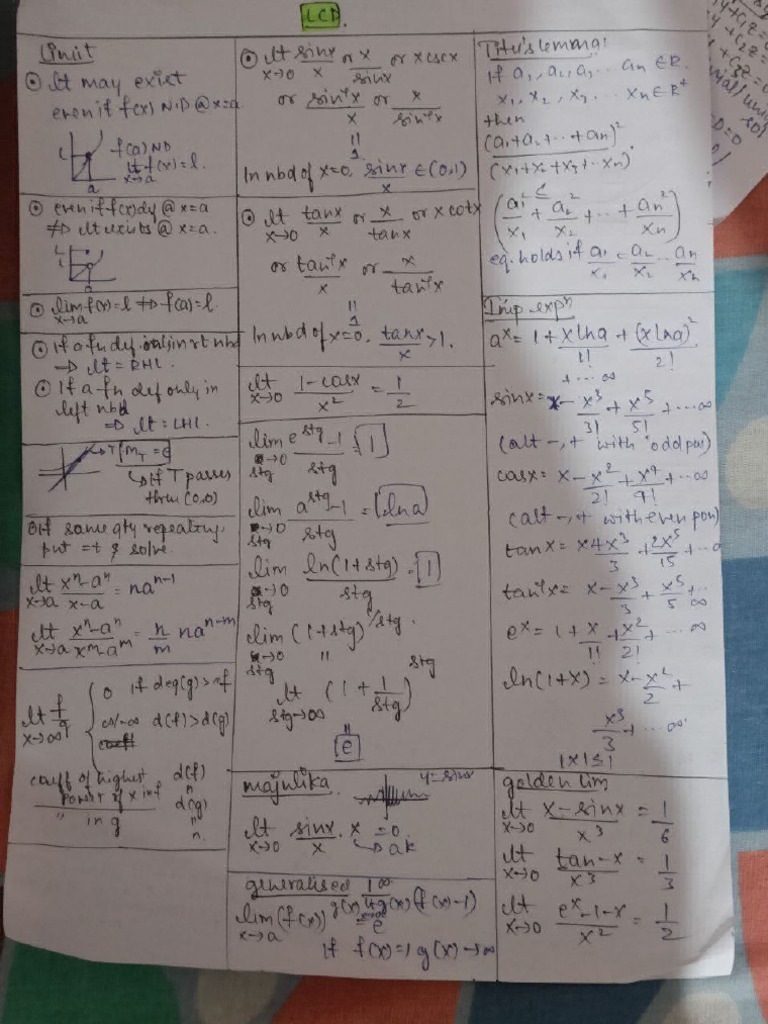 LCD.
Limit
⊙ lt may exist
even if f(x) ND @ x=a
f(a) ND
lt f(x)=l.
x→a
l
a
⊙ even if f(x) @ x=a
⇏ lt exists @ x=a.
a
⊙ lim f(x)=l ⇏ f(a)=l.
x→a
⊙ If a fn def. only in rt nbd
⇒ lt = RHL.
⊙ If a fn def only in
left nbd
⇒ lt = LHL.
→T
↳ If T passes
thru (0,0)
If same qty repeating,
put =t & solve.
lt xⁿ-aⁿ / x-a = naⁿ⁻¹
x→a
lt xⁿ-aⁿ / xᵐ-aᵐ = n/m naⁿ⁻ᵐ
x→a
lt f/g
x→∞
0 if deg(g) >
∞/-∞ d(f)>d(g)
coeff of highest
power of x in f
" in g
d(f)
"
d(g)
"
n.
⊙ lt sinx/x or x/sinx or x cscx
x→0
or sin⁻¹x/x or x/sin⁻¹x
||
1
In nbd of x=0, sinx/x ∈ (0,1)
⊙ lt tanx/x or x/tanx or x cotx
x→0
or tan⁻¹x/x or x/tan⁻¹x
||
1
In nbd of x=0, tanx/x >1.
lt 1-cosx / x² = 1/2
x→0
lim e^stg -1 / stg = 1
stg→0
lim a^stg -1 / stg = lna
stg→0
lim ln(1+stg) / stg = 1
stg→0
lim (1+stg)^1/stg.
stg→0
||
lt (1+1/stg)^stg
stg→∞
||
e
majnulika
y=sinx
lt sinx/x . x = 0
x→0
generalised 1^∞
lim (f(x))^g(x) = e^lt g(x)(f(x)-1)
x→a
if f(x)=1 g(x)→∞
Titu's lemma:
If a₁, a₂, a₃ ... aₙ ∈ R.
x₁, x₂, x₃ .... xₙ ∈ R⁺
then
(a₁+a₂+...+aₙ)² / (x₁+x₂+x₃+..xₙ).
≤
(a₁²/x₁ + a₂²/x₂ + .. + aₙ²/xₙ)
eq. holds if a₁/x₁ = a₂/x₂ .. aₙ/xₙ
Imp expⁿ
aˣ = 1 + xlna/1! + (xlna)²/2!
+ ... ∞
sinx = x - x³/3! + x⁵/5! + ... ∞
(alt -,+ with odd pow)
cosx = x - x²/2! + x⁴/4! + ... ∞
(alt -,+ with even pow)
tanx = x + x³/3 + 2x⁵/15 + .. ∞
tan⁻¹x = x - x³/3 + x⁵/5 + .. ∞
eˣ = 1 + x/1! + x²/2! + ... ∞
ln(1+x) = x - x²/2 +
x³/3 + ... ∞
|x| ≤ 1
golden lim
lt x-sinx / x³ = 1/6
x→0
lt tan-x / x³ = 1/3
x→0
lt eˣ-1-x / x² = 1/2
x→0